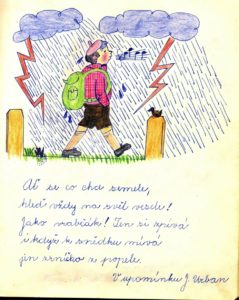 Ať se co chce semele,
hleď vždy na svět vesele!
Jako vrabčák! Ten si zpívá
i když k snídku mívá
jen zrníčko z popele.
V upomínku J. Urban